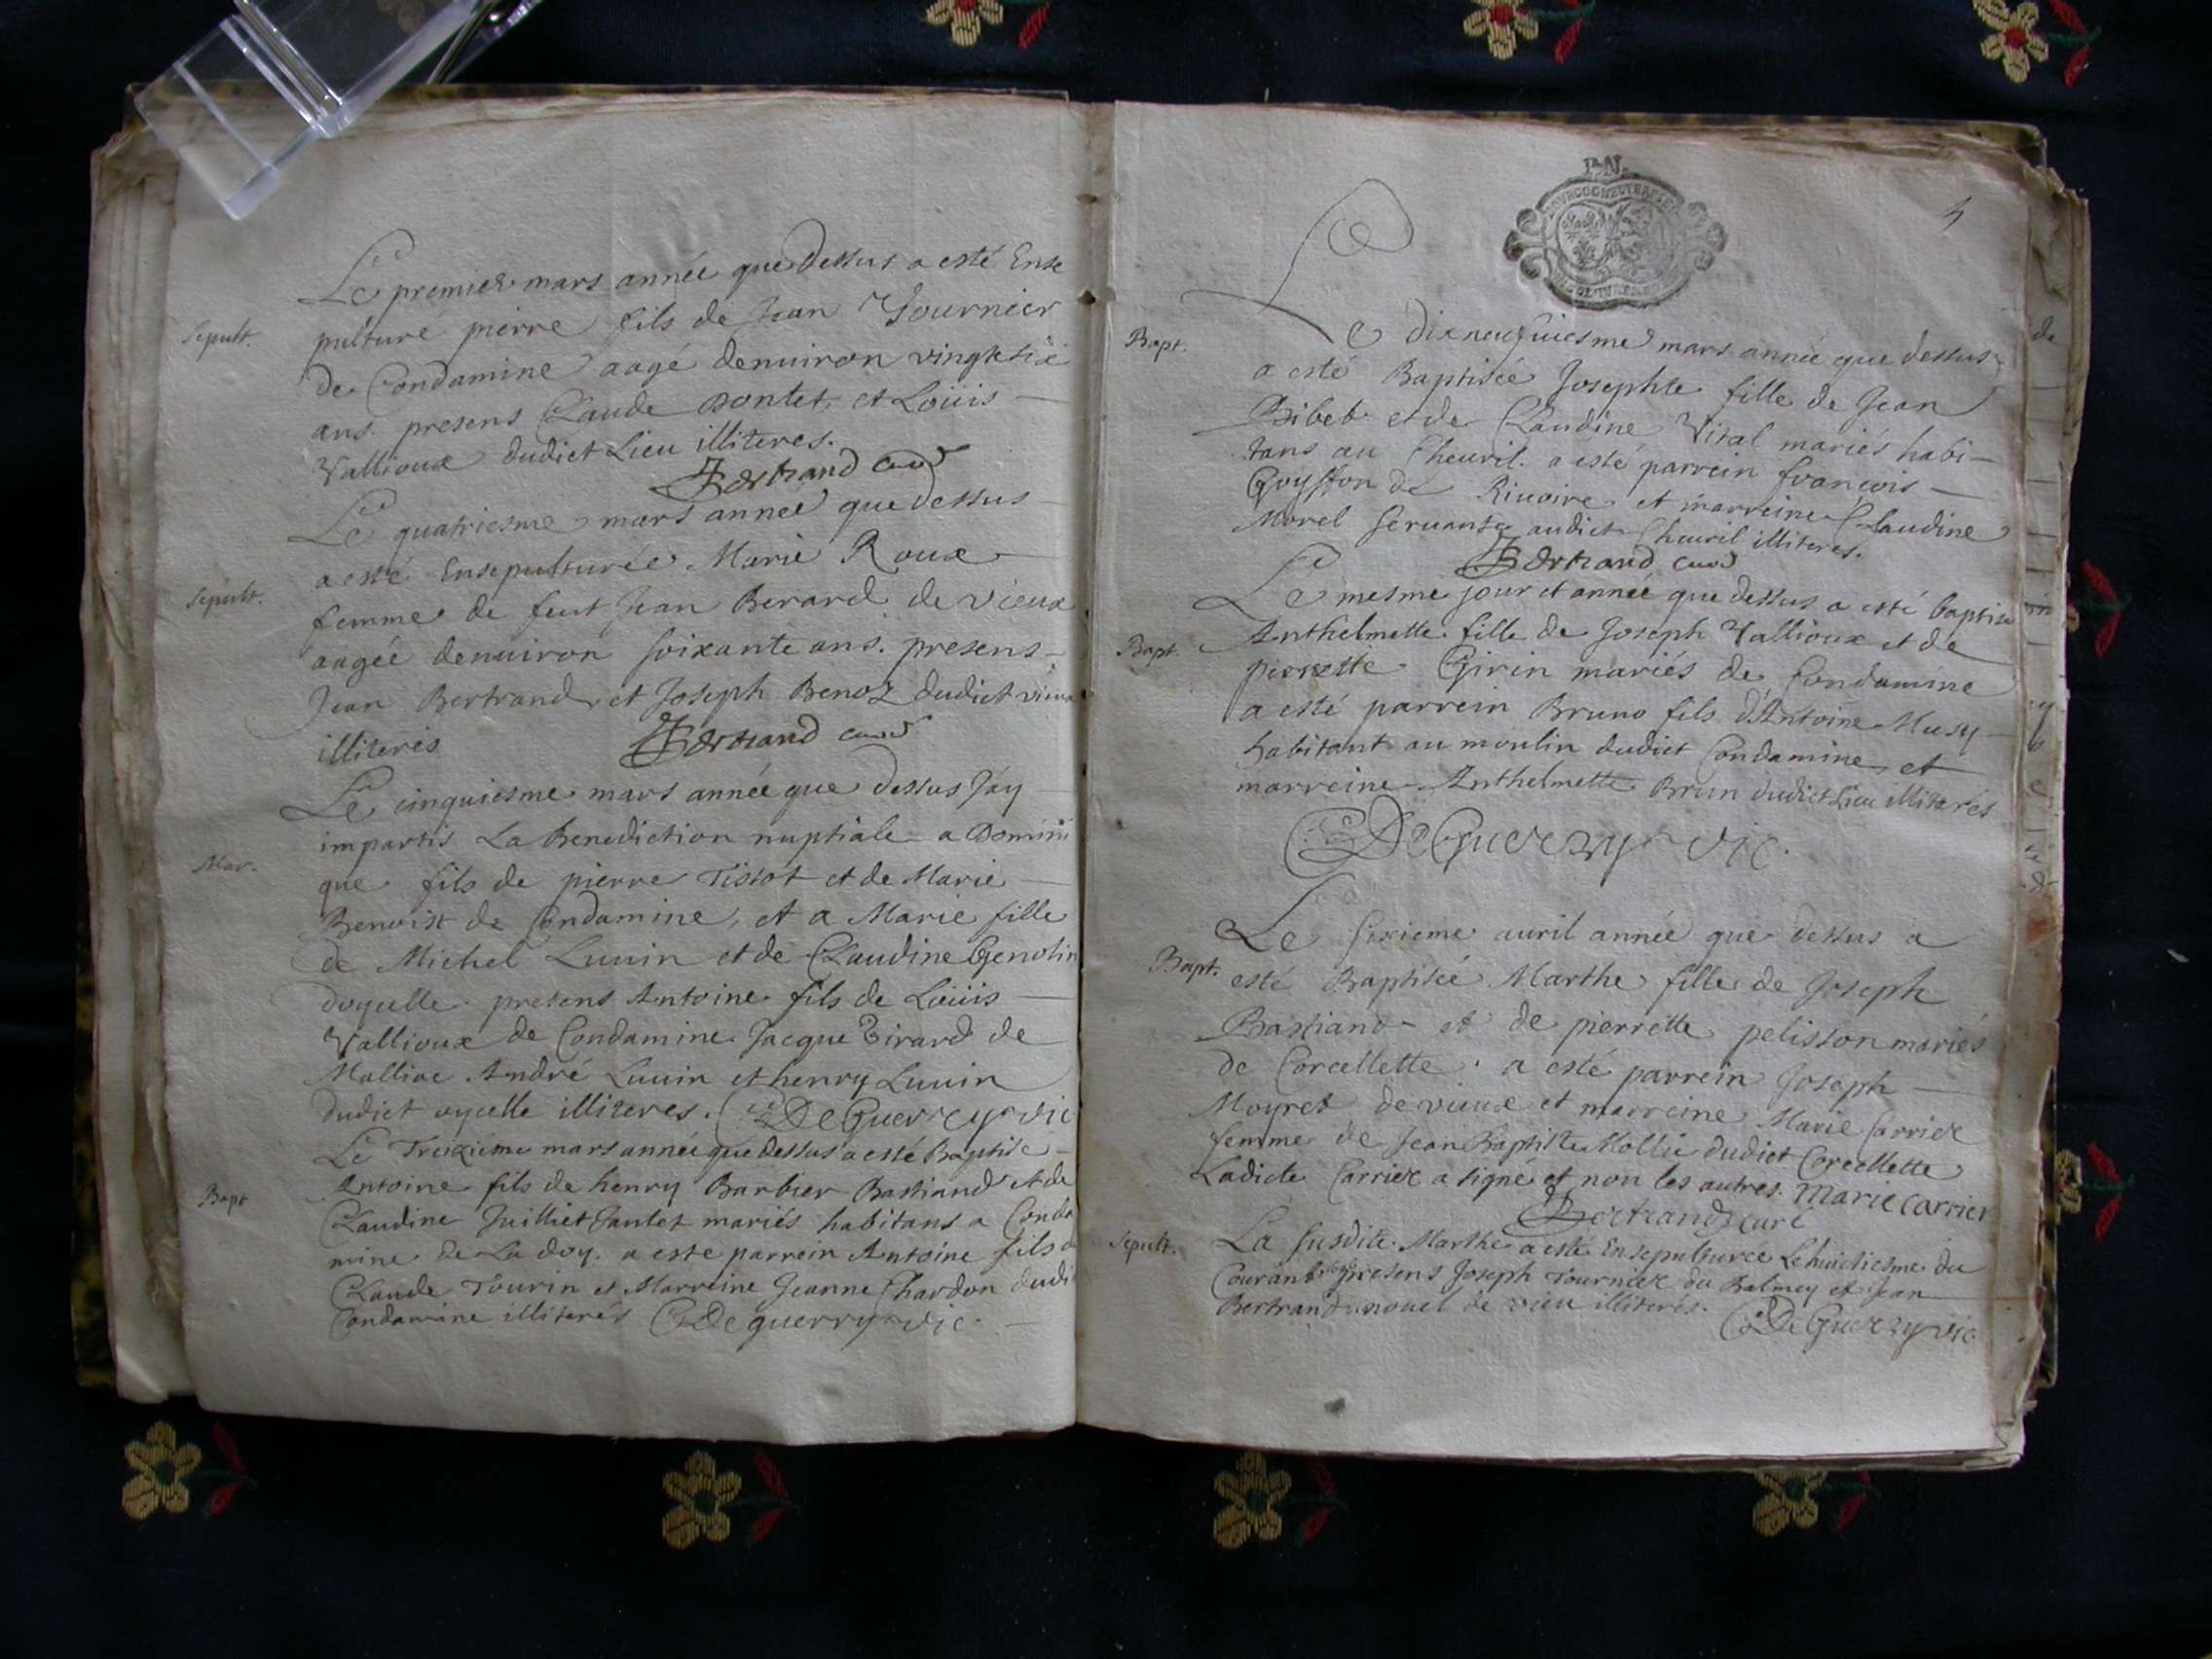 Le premier mars année que dessus a esté Ense
Sepult. pulturé pierre fils de Jean Tournier
de Condamine aagé denuiron vingt six
ans. presens Claude Bontet, et Loüis
Vallioux dudict Lieu illiteres.
Bertrand curé
Le quatriesme mars année que dessus
a esté Ensepulturée Marie Roux
Sepult. femme de feut Jean Berard de vieux
aagée denuiron soixante ans. presens
Jean Bertrand, et Joseph Benoz dudict vieux
illiteres Bertrand curé
Le cinquiesme mars année que dessus J'ay
impartis La Benediction nuptiale a Domini
Mar. que fils de pierre Tissot et de Marie
Benoist de Condamine, et a Marie fille
de Michel Luuin et de Claudine Genolin
doycelle. presens Antoine fils de Loüis
Vallioux de Condamine Jacque Girard de
Malliac André Luuin et henry Luuin
dudict oycelle illiteres. DeGuerry vic
Le Treiziéme mars année que dessus a esté Baptisé
Bapt Antoine fils de henry Barbier Bastiand et de
Claudine Juilliet Jantet mariés habitans a Conda
mine de La doy. a este parrein Antoine fils d
Claude Tourin et Marreine Jeanne Chardon dudi
Condamine illiterés Deguerry vic.
4
Le dixneufuiesme mars année que dessus
Bapt. a esté Baptisée Josephte fille de Jean
Bibet et de Claudine Vital mariés habi
tans au Cheuril. a esté parrein francois
Goyffon de Riuoire et marreine Claudine
Morel seruante audict Cheuril illiteres.
Bertrand curé
Le mesme jour et année que dessus a esté baptisé
Bapt. Anthelmette fille de Joseph Vallioux et de
pierrette Girin mariés de Condamine
a esté parrein Bruno fils d'Antoine Musy
habitant au moulin dudict Condamine et
marreine Anthelmette Brun dudict Lieu illiterés
DeGuerry vic.
Le sixieme auril année que dessus a
Bapt. esté Baptisée Marthe fille de Joseph
Bastiand et de pierrette pelisson mariés
de Corcellette. a esté parrein Joseph
Moyret de vieux et marreine Marie Carrier
femme de Jean Baptiste Mollie dudict Corcellette
Ladicte Carrier a signé et non les autres. Marie carrier
Bertrand curé
Sepult. La susdite Marthe a esté Ensepulturée Le huictiesme du
Courant presens Joseph Tournier du Balmey et Jean
Bertrand nouel de vieu illiterés.
DeGuerry vic